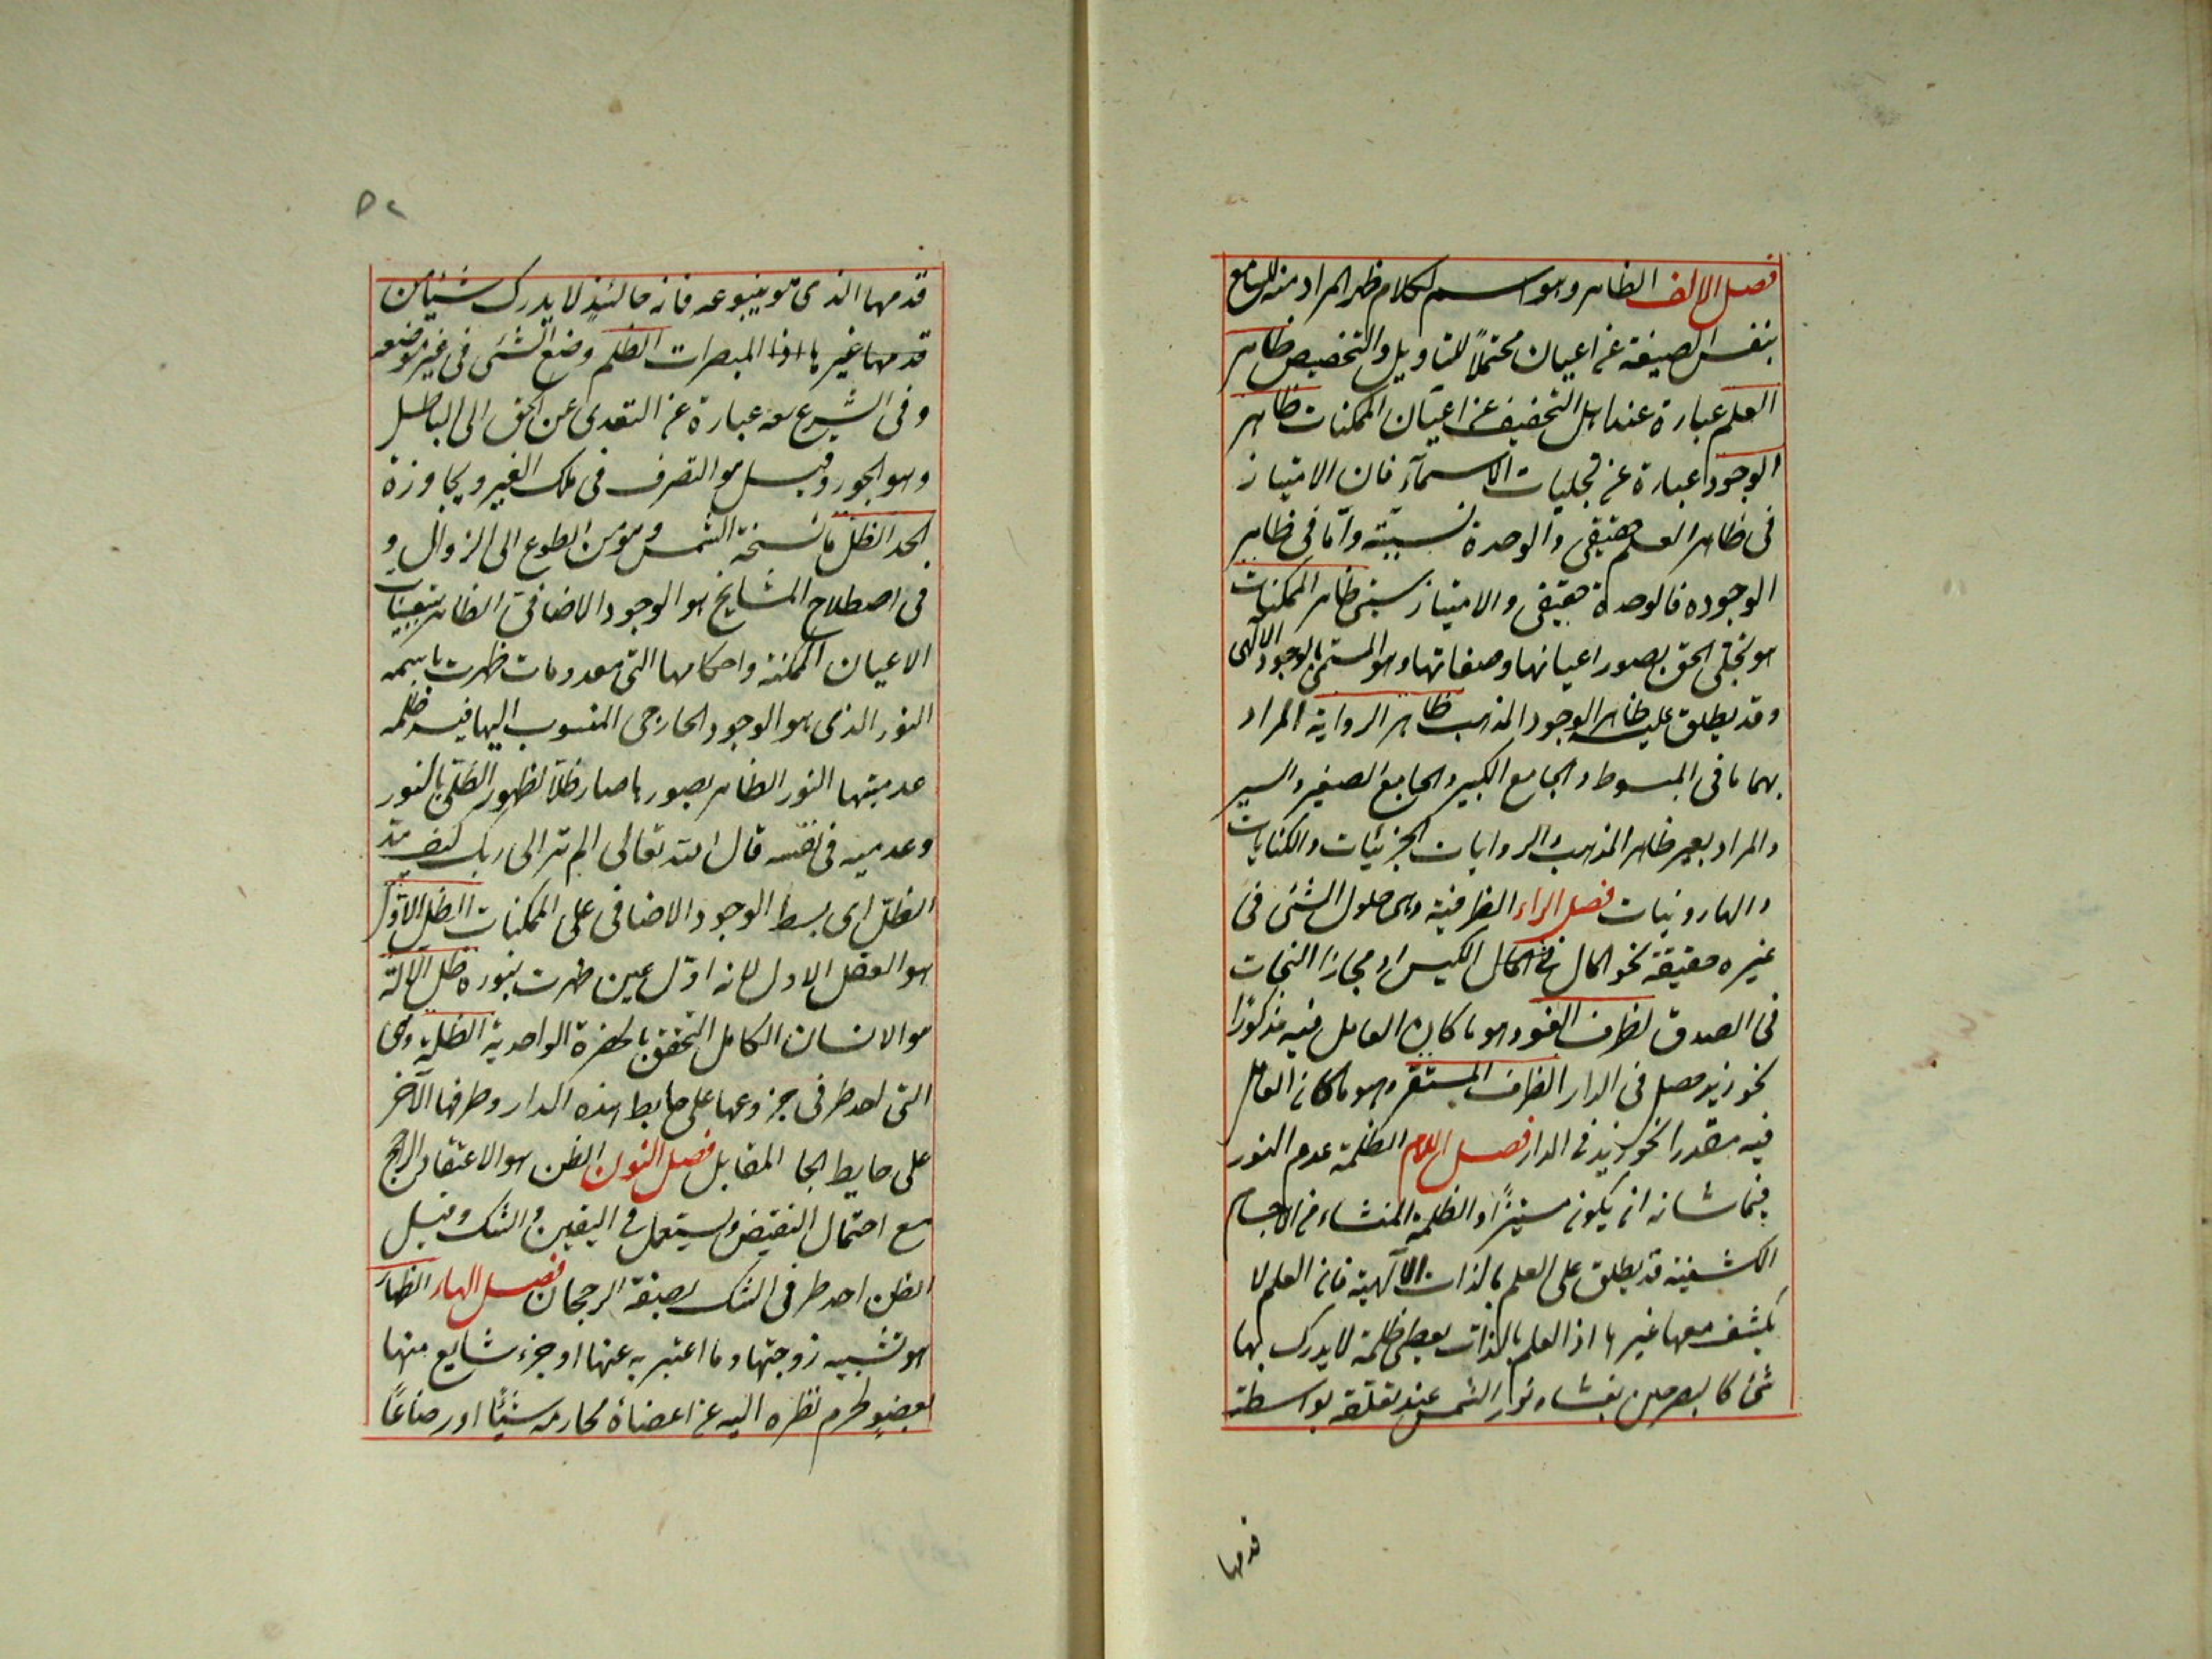 فصل الالف الظاهر وهو اسم لكلام ظهر المراد منه للسامع
بنفس الصيغة عن اعيان محتملاً للتاويل والتخصيص ظاهر
العلم عبارة عند اهل التحقيق عن اعيان الممكنات ظاهر
الوجود عبارة عن تجليات الاسمآء فان الامتياز
فى ظاهر العلم حقيقى والوحدة نسبيته واما فى ظاهر
الوجوده فالوحدة حقيقى والامتياز نسبى ظاهر الممكنات
هو تجلى الحق بصور اعيانها وصفاتها وهو المسمى بالوجود الالهى
وقد يطلق عليه ظاهر الوجود المذهب ظاهر الرواية المراد
بهما ما فى المبسوط والجامع الكبير والجامع الصغير والسير
والمراد بغير ظاهر المذهب والروايات الجزئيات والكنايات
والهارونيات فصل الراء الظرفية وهى حلول الشئ فى
غيره حقيقة نحو المال فى الكيس او مجازا النجات
فى الصدق لظرف اللغو وهو ما كان العامل فيه مذكورًا
نحو زيد حصل فى الدار الظرف المستقر وهو ما كان العامل
فيه مقدرا نحو زيد فى الدار فصل اللام الظلمة عدم النور
فيما شانه ان يكون مستنيرًا والظلمة المنشاء من الاجسام
الكشفية قد يطلق على العلم بالذات الآلهية فان العلم لا
يكشف معها غيرها اذ العلم بالذات يعطى ظلمة لا يدرك بها
شئ كالبصر حين يغشاه نوار الشمس عند تعلقه بواسطة
قدمها
٥٢
قدمها الذى هو ينبوعه فانه حالئيذ لا يدرك شيئا من
قدمها غيرها اذا المبصرات الظلم وضع الشئى فى غير موضعه
وفى الشرع هو عبارة عن التعدى عن الحق الى الباطل
وهو الجور وقيل هو التصرف فى ملك الغير ويجاوزة
الحد الظل ما نسخة الشمس وهو من الطوع الى الزوال و
فى اصطلاح المشايخ هو الوجود الاضافى الظاهر بتعينات
الاعيان الممكنة واحكامها التى معدومات ظهرت باسمه
النور الذى هو الوجود الخارجى المنسوب اليها فيستر ظلمة
عدميتها النور الظاهر بصورها صار ظلاً لظهور الظل بالنور
وعدميه فى نفسه قال الله تعالى الم تر الى ربك كيف مد
الظل اى بسط الوجود الاضافى على الممكنات الظل الاول
هو العقل الاول لانه اول عين ظهرت بنوره ظل الالة
هو الانسان الكامل المتحقق بالحضرة الواحدية الظلة وهى
التى احد طرفى جزوعها على حايط هذه الدار وطرفها الآخر
على حايط الجا المقابل فصل النون الظن هو الاعتقاد الراجح
مع احتمال النقيض ويستعمل فى اليقين والشك وقيل
الظن احد طرفى الشك بصيغة الرجحان فصل الهاء الظهار
هو تشبيه زوجتها وما اعتبر به عنها او جزء شايع منها
بعضو لحرم نظره اليه عن اعضاء محارمه شيئًا او رضاعًا